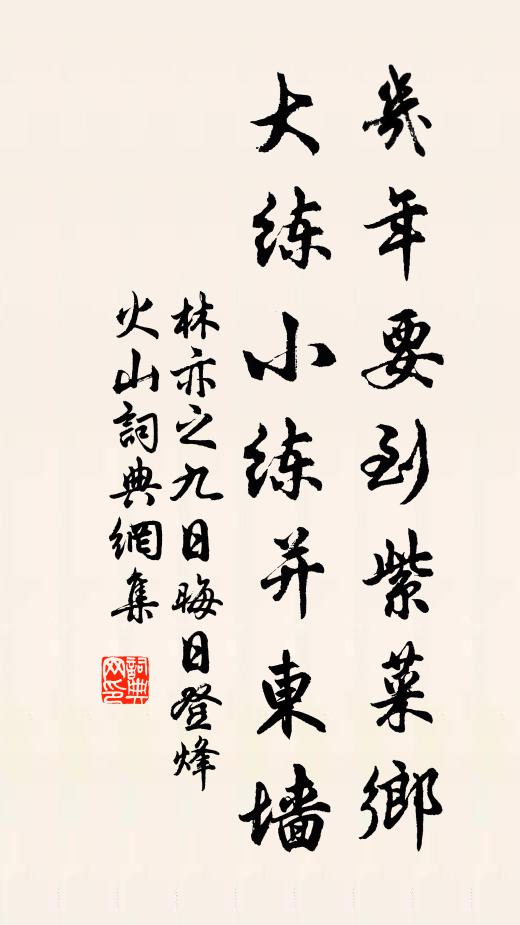 幾年要到紫菜鄉
大练小练并東墙
林亦之九日晦日登烽
火山詞典網集
詞典网印